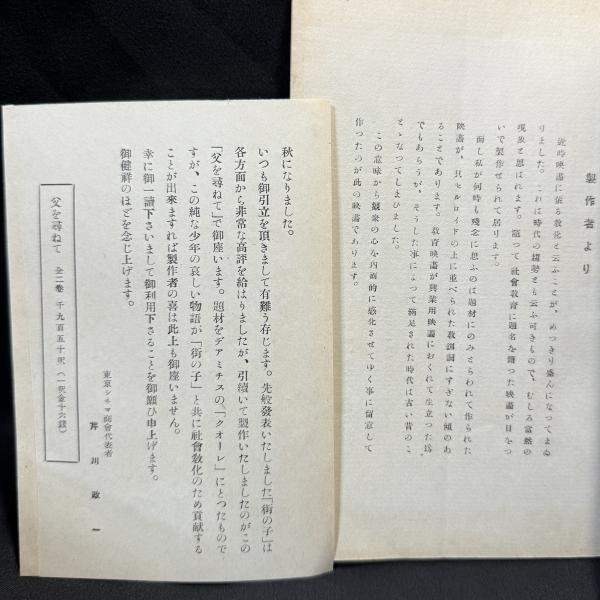 製作者より
近時映畫に依る教化と云ふことが、めつきり盛んになつてまゐ
りました。これは時代の趨勢とも云ふ可きもので、むしろ當然の
現象と思はれます。隨つて社會教育に題名を藉つた映畫が目をつ
いで製作せられて居ります。
而し私が何時も殘念に思ふのは題材にのみとらわれて作られた
映畫が、只セルロイドの上に並べられた教訓詞にすぎない傾のあ
ることであります。教育映畫が興業用映畫におくれて生立つた爲
でもあらうが、そうした事によつて滿足された時代は古い昔のこ
とゝなつてしまひました。
この意味から觀衆の心を内面的に感化させてゆく事に留意して
作つたのが此の映畫であります。
秋になりました。
いつも御引立を頂きまして有難う存じます。先般發表いたしました「街の子」は
各方面から非常な高評を給はりましたが、引續いて製作いたしましたのがこの
「父を尋ねて」で御座います。題材をデアミチスの「クオーレ」にとつたもので
すが、この純な少年の哀しい物語が「街の子」と共に社會教化のため貢獻する
ことが出來ますれば製作者の喜は此上も御座いません。
幸に御一讀下さいまして御利用下さることを御願ひ申上げます。
御健祥のほどを念じ上げます。
東京シネマ商會代表者
芹川政一
父を尋ねて 全二卷 千九百五十呎（一呎金十六錢）